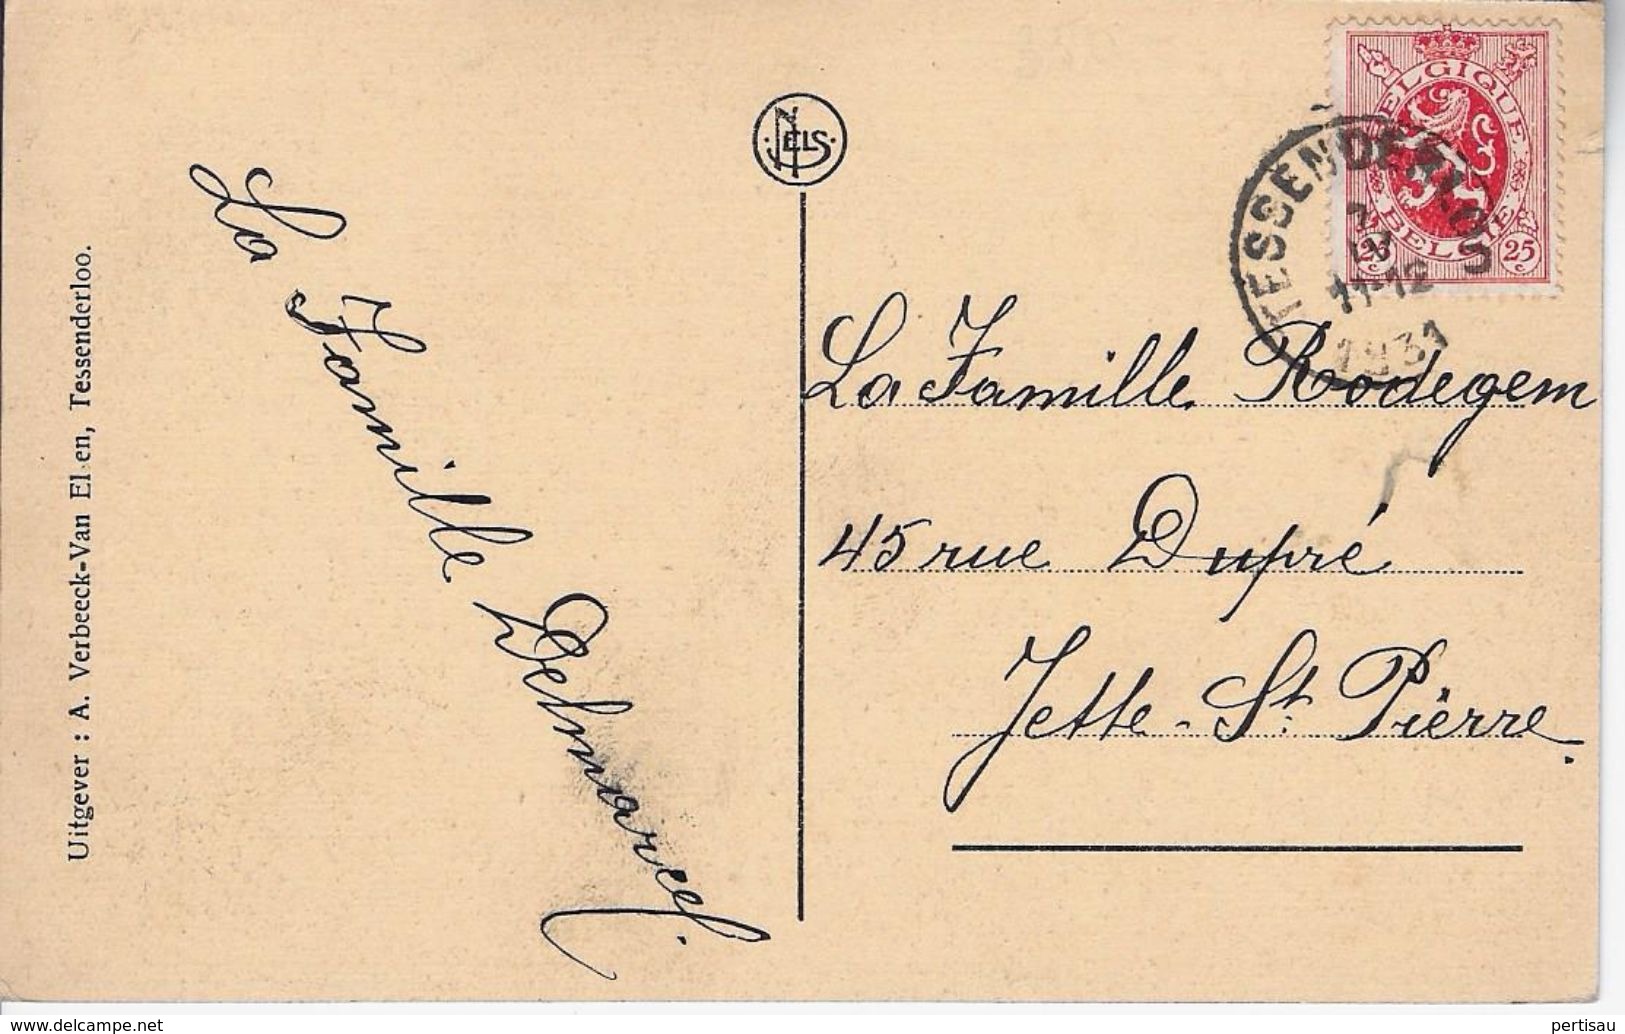 Uitgever : A. Verbeeck-Van El en, Tessenderloo.
La Famille Delmarcel.
NELS
BELGIQUE
BELGIE
25 c 25 c
TESSENDERLOO
IV
11-12
1931
La Famille Rodegem
45 rue Dupré
Jette-St Pierre.
delcampe.net
pertisau